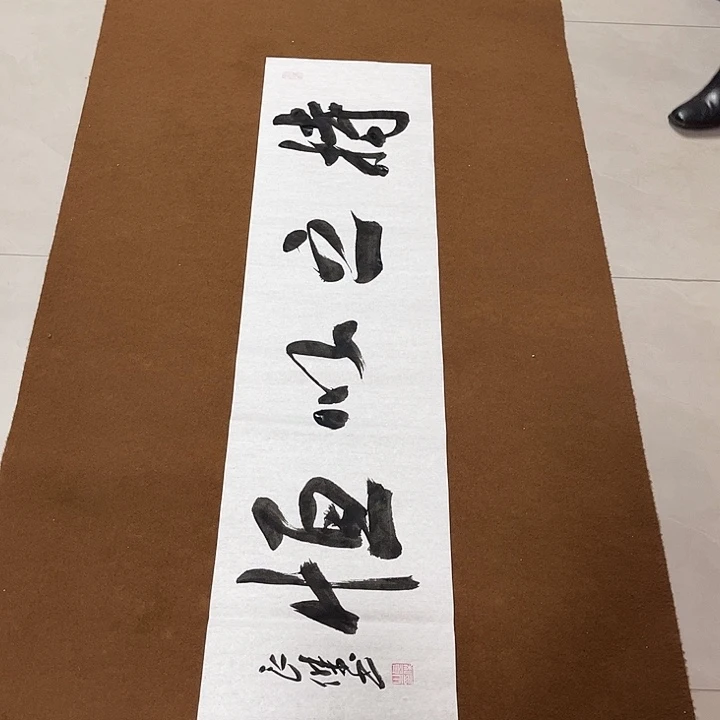 持之以恒